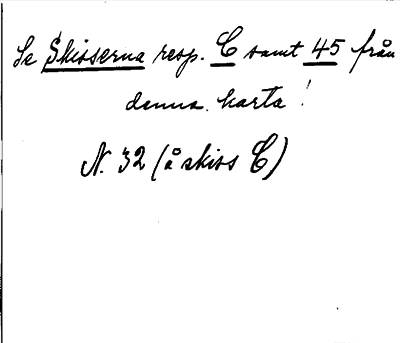 Se Skisserna resp. C samt 45 från
denna karta!
N. 32 (å skiss C)